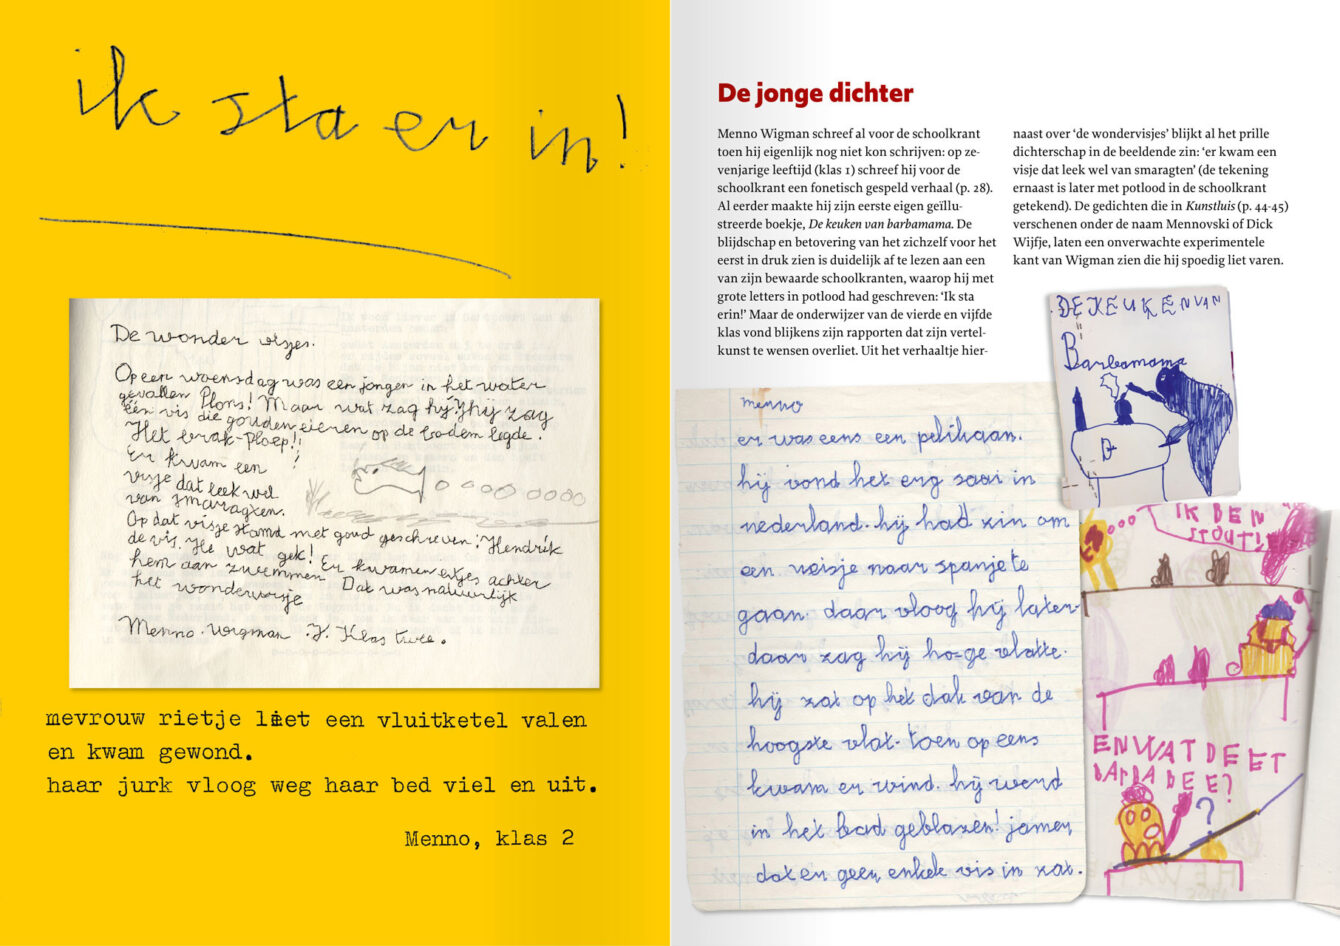 ik sta er in!
De wonder visjes.
Op een woensdag was een jongen in het water
gevallen Plons! Maar wat zag hij? hij zag
één vis die gouden eieren op de bodem legde.
Het brak-Ploep!!
Er kwam een
visje dat leek wel
van smaragten.
Op dat visje stond met goud geschreven: Hendrik
de vis. He wat gek! Er kwamen eitjes achter
hem aan zwemmen Dat was natuurlijk
het wondervisje
Menno. Wigman. J. Klas twee.
mevrouw rietje liet een vluitketel valen
en kwam gewond.
haar jurk vloog weg haar bed viel en uit.
Menno, klas 2
De jonge dichter
Menno Wigman schreef al voor de schoolkrant
toen hij eigenlijk nog niet kon schrijven: op ze-
venjarige leeftijd (klas 1) schreef hij voor de
schoolkrant een fonetisch gespeld verhaal (p. 28).
Al eerder maakte hij zijn eerste eigen geïllu-
streerde boekje, De keuken van barbamama. De
blijdschap en betovering van het zichzelf voor het
eerst in druk zien is duidelijk af te lezen aan een
van zijn bewaarde schoolkranten, waarop hij met
grote letters in potlood had geschreven: ‘Ik sta
erin!’ Maar de onderwijzer van de vierde en vijfde
klas vond blijkens zijn rapporten dat zijn vertel-
kunst te wensen overliet. Uit het verhaaltje hier-
naast over ‘de wondervisjes’ blijkt al het prille
dichterschap in de beeldende zin: ‘er kwam een
visje dat leek wel van smaragten’ (de tekening
ernaast is later met potlood in de schoolkrant
getekend). De gedichten die in Kunstluis (p. 44-45)
verschenen onder de naam Mennovski of Dick
Wijfje, laten een onverwachte experimentele
kant van Wigman zien die hij spoedig liet varen.
DE KEUKEN VAN
Barbamama
menno
er was eens een pelikaan.
hij vond het erg saai in
nederland. hij had zin om
een reisje naar spanje te
gaan. daar vloog hij later.
daar zag hij hoge vlatte.
hij zat op het dak van de
hoogste vlat. toen op eens
kwam er wind. hij werd
in het bad geblazen! jamer,
dat er geen enkele vis in zat.
IK BEN
STOUT!
EN WAT DEET
BARBABEE?
?